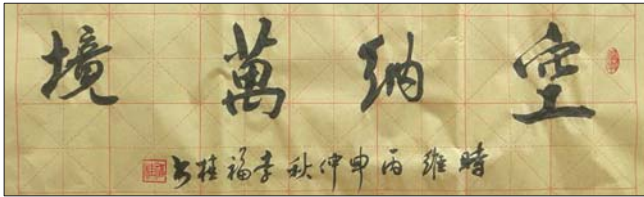 空納萬境
時維丙申仲秋李福桂书